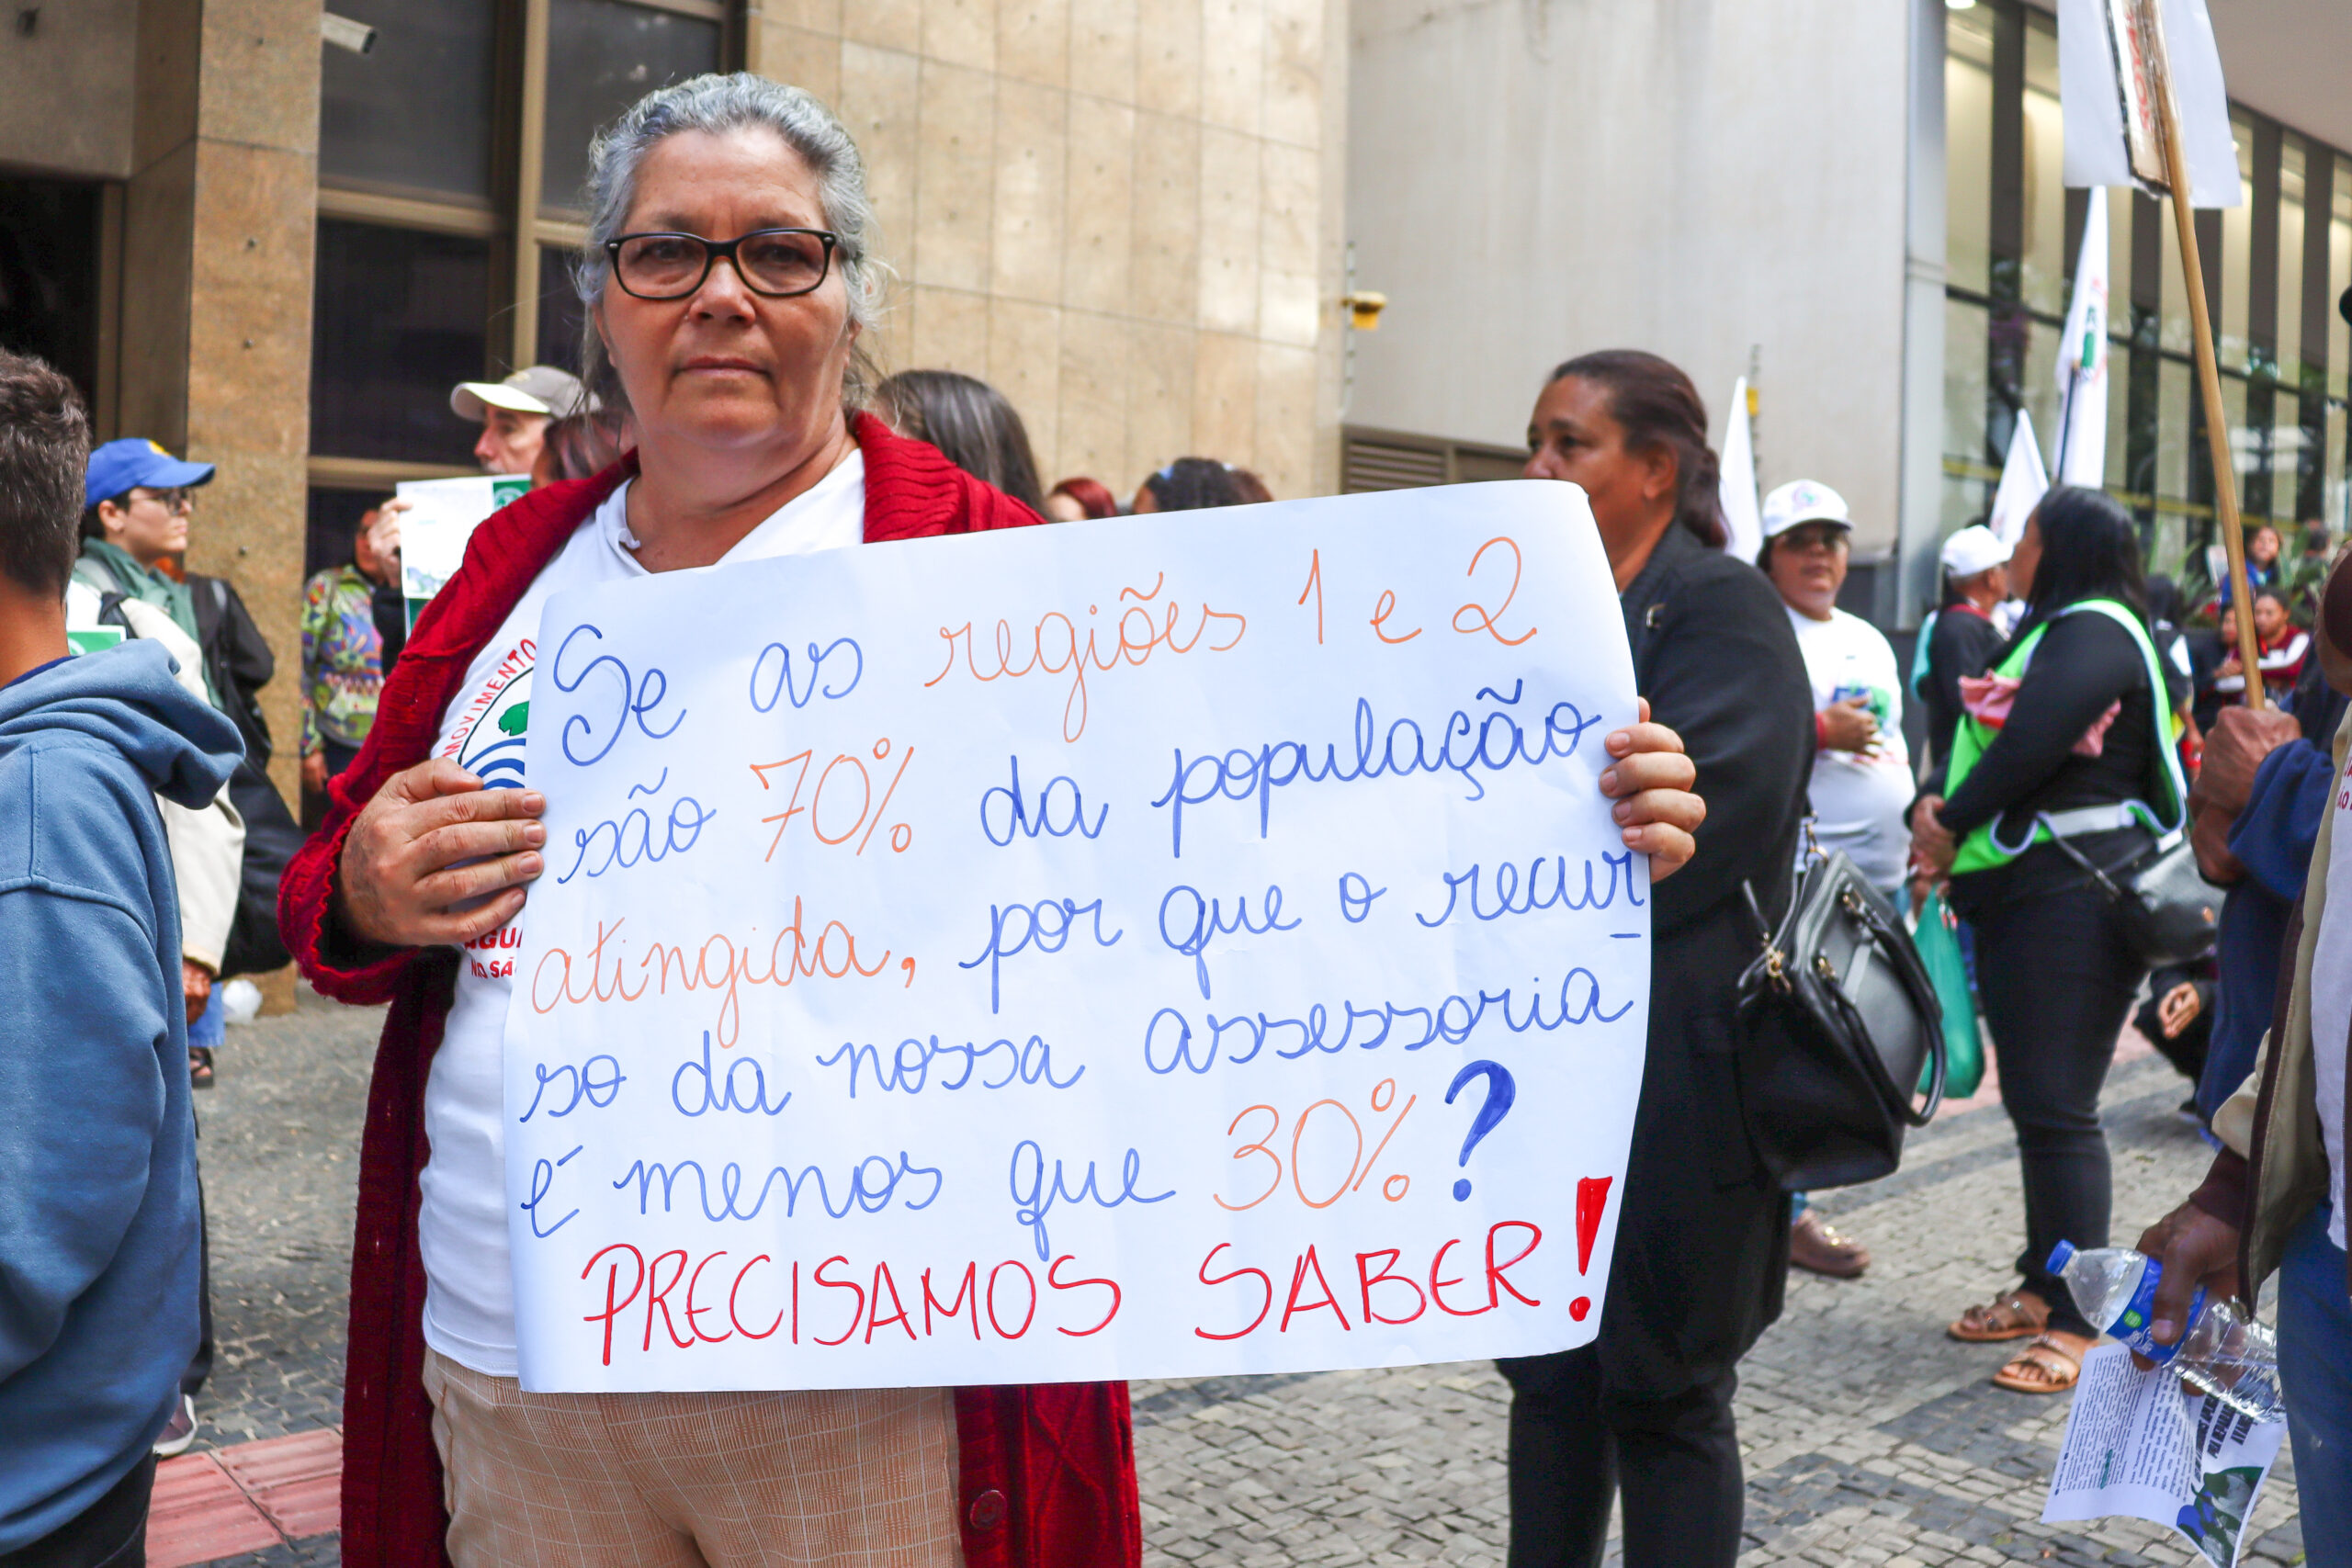 Se as regiões 1 e 2
são 70% da população
atingida, por que o recur-
so da nossa assessoria
é menos que 30%?
PRECISAMOS SABER!
MOVIMENTO
NO